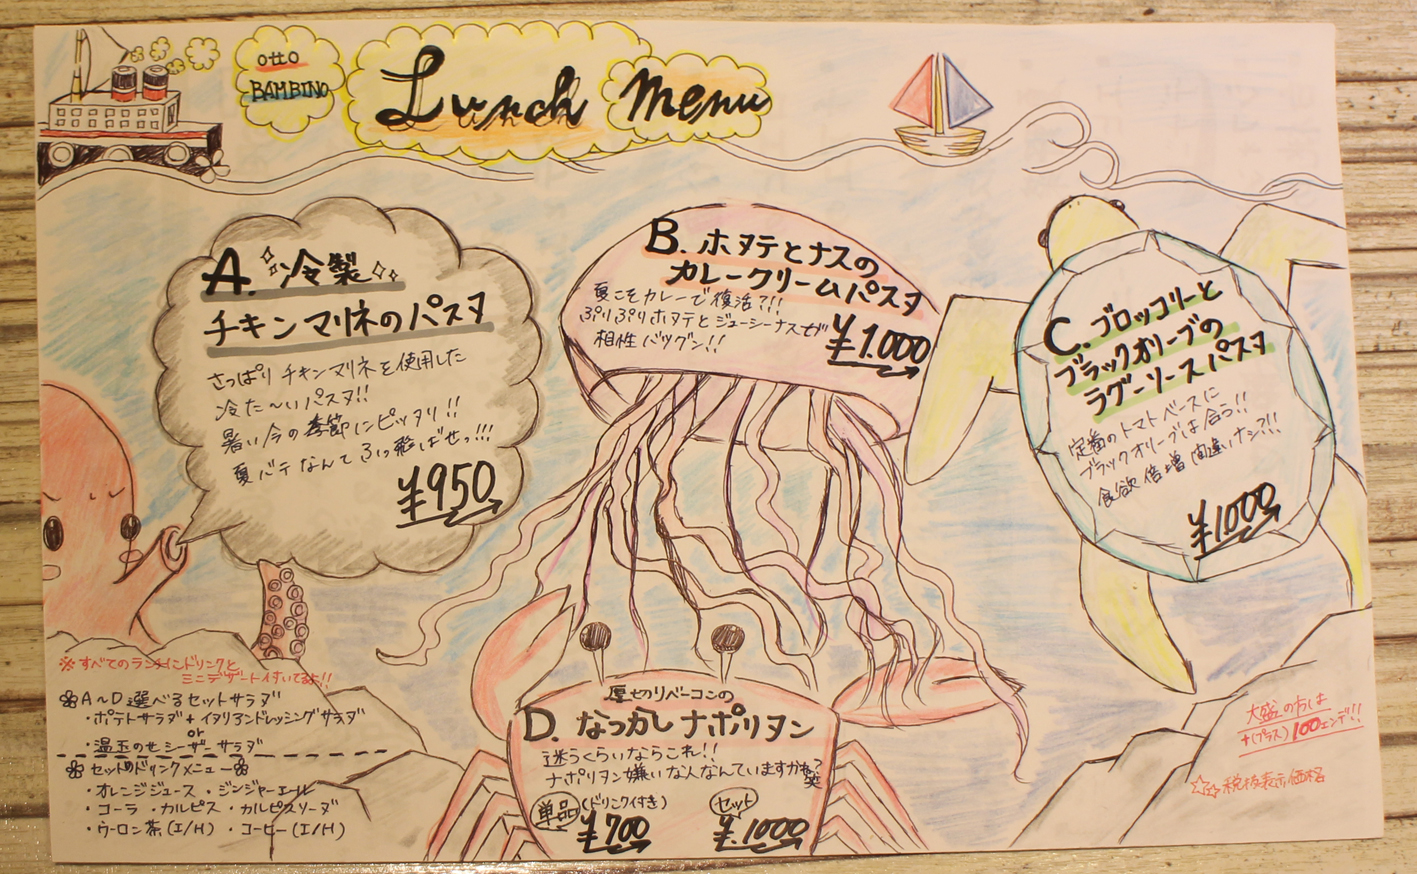 otto
BAMBINO
Lunch Menu
A. 冷製
チキンマリネのパスタ
さっぱりチキンマリネを使用した
冷た〜いパスタ!!
暑い今の季節にピッタリ!!
夏バテなんてふっ飛ばせっ!!!
¥950
B. ホタテとナスの
カレークリームパスタ
夏こそカレーで復活?!!
ぷりぷりホタテとジューシーナスが
相性バツグン!!
¥1.000
C. ブロッコリーと
ブラックオリーブの
ラグーソースパスタ
定番のトマトベースに
ブラックオリーブは合う!!
食欲倍増間違いナシ?!!
¥1000
厚切りベーコンの
D. なつかしナポリタン
迷うくらいならこれ!!
ナポリタン嫌いな人なんていますかね?笑
単品 (ドリンク付き) ¥700
セット ¥.1000
※すべてのランチにドリンクと
ミニデザート付いてるよ!!
A〜D選べるセットサラダ
・ポテトサラダ+イタリアンドレッシングサラダ
or
・温玉のせシーザーサラダ
セットのドリンクメニュー
・オレンジジュース ・ジンジャーエール
・コーラ ・カルピス ・カルピスソーダ
・ウーロン茶(I/H) ・コーヒー(I/H)
大盛の方は
+(プラス)100エンデ!!
☆税抜表示価格